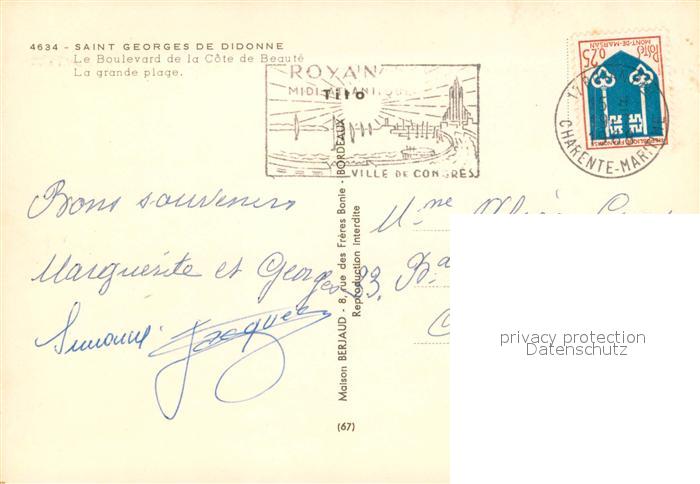 4634 - SAINT GEORGES DE DIDONNE
Le Boulevard de la Côte de Beauté
La grande plage.
ROYAN
MIDI ATLANTIQUE
VILLE DE CONGRÈS
Postes
0,25
MONT-DE-MARSAN
REPUBLIQUE FRANÇAISE
17
CHARENTE-MARITIME
Bons souvenirs
Marguerite et Georges
Simone Jacques
Mme
Maison BERJAUD - 8, rue des Frères Bonie - BORDEAUX
Reproduction Interdite
(67)
privacy protection
Datenschutz